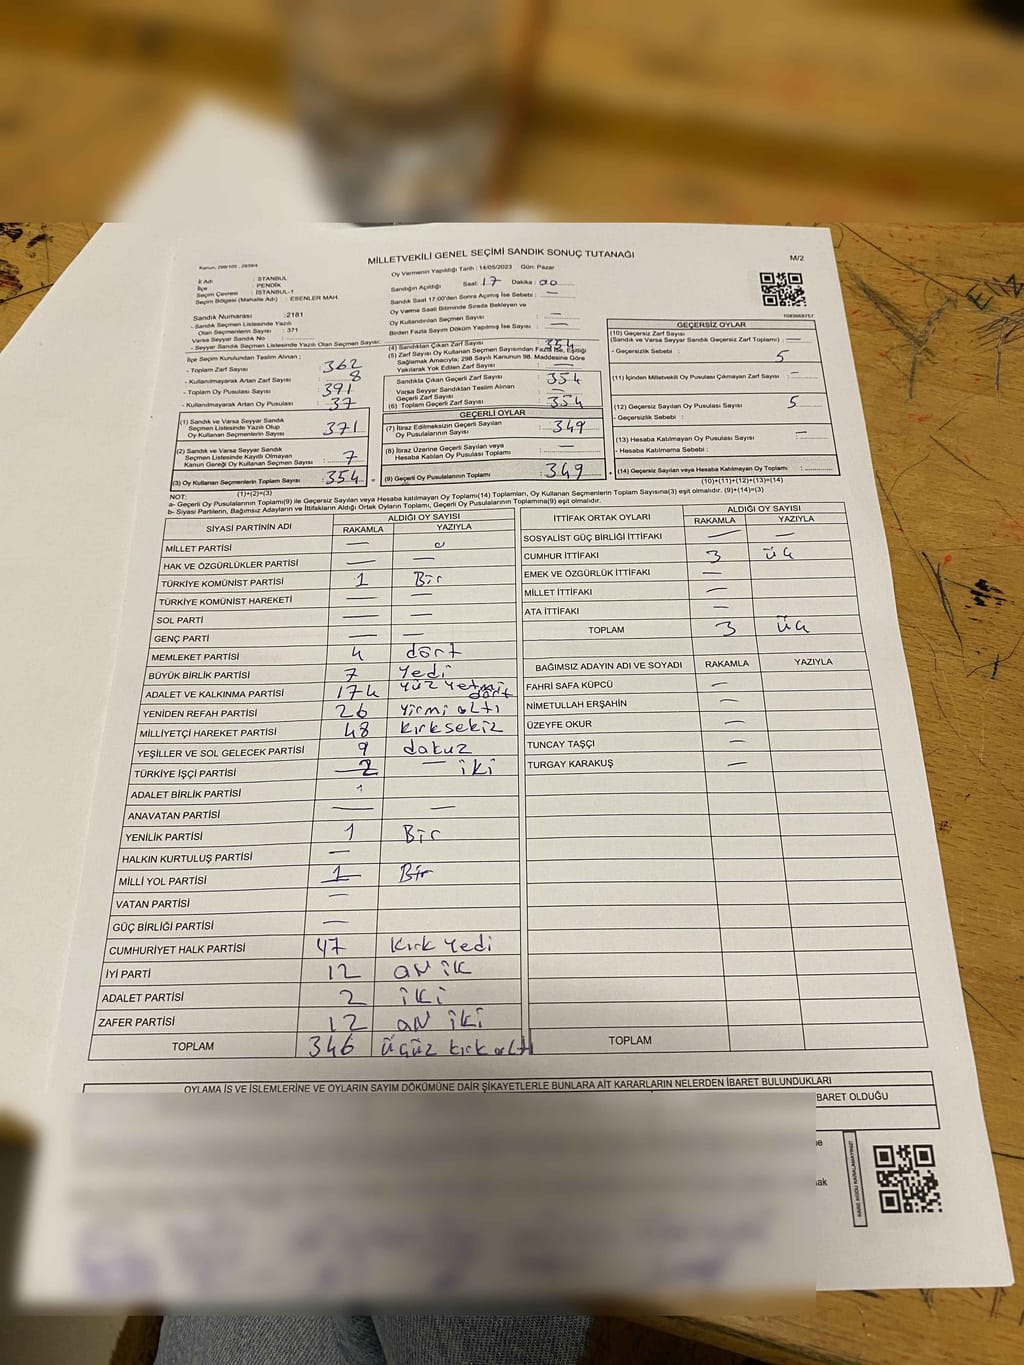 MİLLETVEKİLİ GENEL SEÇİMİ SANDIK SONUÇ TUTANAĞI
M/2
İl Adı : İSTANBUL
İlçe : PENDİK
Seçim Çevresi : İSTANBUL-1
Seçim Bölgesi (Mahalle Adı) : ESENLER MAH.
Oy Vermenin Yapıldığı Tarih : 14/05/2023 Gün: Pazar
Sandığın Açıldığı Saat: 17 Dakika : 00
Sandık Saat 17:00'den Sonra Açılmış İse Sebebi : —
Oy Verme Saati Bitiminde Sırada Bekleyen ve
Oy Kullandırılan Seçmen Sayısı : —
Birden Fazla Sayım Döküm Yapılmış İse Sayısı : —
Sandık Numarası : 2181
- Sandık Seçmen Listesinde Yazılı
Olan Seçmenlerin Sayısı : 371
Varsa Seyyar Sandık No :
- Seyyar Sandık Seçmen Listesinde Yazılı Olan Seçmen Sayısı:
İlçe Seçim Kurulundan Teslim Alınan ;
- Toplam Zarf Sayısı : 362
- Kullanılmayarak Artan Zarf Sayısı : 8
- Toplam Oy Pusulası Sayısı : 391
- Kullanılmayarak Artan Oy Pusulası : 37
(1) Sandık ve Varsa Seyyar Sandık
Seçmen Listesinde Yazılı Olup
Oy Kullanan Seçmenlerin Sayısı : 371
(2) Sandık ve Varsa Seyyar Sandık
Seçmen Listesinde Kayıtlı Olmayan
Kanun Gereği Oy Kullanan Seçmen Sayısı : 7
(3) Oy Kullanan Seçmenlerin Toplam Sayısı : 354
(1)+(2)=(3)
(4) Sandıktan Çıkan Zarf Sayısı : 354
(5) Zarf Sayısı Oy Kullanan Seçmen Sayısından Fazla İse, Eşitliği
Sağlamak Amacıyla; 298 Sayılı Kanunun 98. Maddesine Göre
Yakılarak Yok Edilen Zarf Sayısı : —
Sandıkta Çıkan Geçerli Zarf Sayısı : 354
Varsa Seyyar Sandıktan Teslim Alınan
Geçerli Zarf Sayısı : —
(6) Toplam Geçerli Zarf Sayısı : 354
GEÇERLİ OYLAR
(7) İtiraz Edilmeksizin Geçerli Sayılan
Oy Pusulalarının Sayısı : 349
(8) İtiraz Üzerine Geçerli Sayılan veya
Hesaba Katılan Oy Pusulası Toplamı : —
= (9) Geçerli Oy Pusulalarının Toplamı : 349 +
GEÇERSİZ OYLAR
(10) Geçersiz Zarf Sayısı
(Sandık ve Varsa Seyyar Sandık Geçersiz Zarf Toplamı) : —
- Geçersizlik Sebebi : 5
(11) İçinden Milletvekili Oy Pusulası Çıkmayan Zarf Sayısı : —
(12) Geçersiz Sayılan Oy Pusulası Sayısı : 5
- Geçersizlik Sebebi :
(13) Hesaba Katılmayan Oy Pusulası Sayısı : —
- Hesaba Katılmama Sebebi :
(14) Geçersiz Sayılan veya Hesaba Katılmayan Oy Toplamı :
(10)+(11)+(12)+(13)=(14)
NOT:
a- Geçerli Oy Pusulalarının Toplamı(9) ile Geçersiz Sayılan veya Hesaba katılmayan Oy Toplamı(14) Toplamları, Oy Kullanan Seçmenlerin Toplam Sayısına(3) eşit olmalıdır. (9)+(14)=(3)
b- Siyasi Partilerin, Bağımsız Adayların ve İttifakların Aldığı Ortak Oyların Toplamı, Geçerli Oy Pusulalarının Toplamına(9) eşit olmalıdır.
SİYASİ PARTİNİN ADI ALDIĞI OY SAYISI
RAKAMLA YAZIYLA
MİLLET PARTİSİ — 0
HAK VE ÖZGÜRLÜKLER PARTİSİ — —
TÜRKİYE KOMÜNİST PARTİSİ 1 Bir
TÜRKİYE KOMÜNİST HAREKETİ — —
SOL PARTİ — —
GENÇ PARTİ — —
MEMLEKET PARTİSİ 4 dört
BÜYÜK BİRLİK PARTİSİ 7 Yedi
ADALET VE KALKINMA PARTİSİ 174 Yüz Yetmiş dört
YENİDEN REFAH PARTİSİ 26 Yirmi altı
MİLLİYETÇİ HAREKET PARTİSİ 48 Kırksekiz
YEŞİLLER VE SOL GELECEK PARTİSİ 9 dokuz
TÜRKİYE İŞÇİ PARTİSİ 2 — iki
ADALET BİRLİK PARTİSİ
ANAVATAN PARTİSİ — —
YENİLİK PARTİSİ 1 Bir
HALKIN KURTULUŞ PARTİSİ —
MİLLİ YOL PARTİSİ 1 Bir
VATAN PARTİSİ —
GÜÇ BİRLİĞİ PARTİSİ —
CUMHURİYET HALK PARTİSİ 47 Kırk Yedi
İYİ PARTİ 12 on ik
ADALET PARTİSİ 2 iki
ZAFER PARTİSİ 12 on iki
TOPLAM 346 üçüz kırk altı
İTTİFAK ORTAK OYLARI ALDIĞI OY SAYISI
RAKAMLA YAZIYLA
SOSYALİST GÜÇ BİRLİĞİ İTTİFAKI — —
CUMHUR İTTİFAKI 3 üç
EMEK VE ÖZGÜRLÜK İTTİFAKI —
MİLLET İTTİFAKI —
ATA İTTİFAKI —
TOPLAM 3 üç
BAĞIMSIZ ADAYIN ADI VE SOYADI RAKAMLA YAZIYLA
FAHRİ SAFA KÜPCÜ —
NİMETULLAH ERŞAHİN —
ÜZEYFE OKUR —
TUNCAY TAŞÇI —
TURGAY KARAKUŞ —
TOPLAM
OYLAMA İŞ VE İŞLEMLERİNE VE OYLARIN SAYIM DÖKÜMÜNE DAİR ŞİKAYETLERLE BUNLARA AİT KARARLARIN NELERDEN İBARET BULUNDUKLARI
BARET OLDUĞU